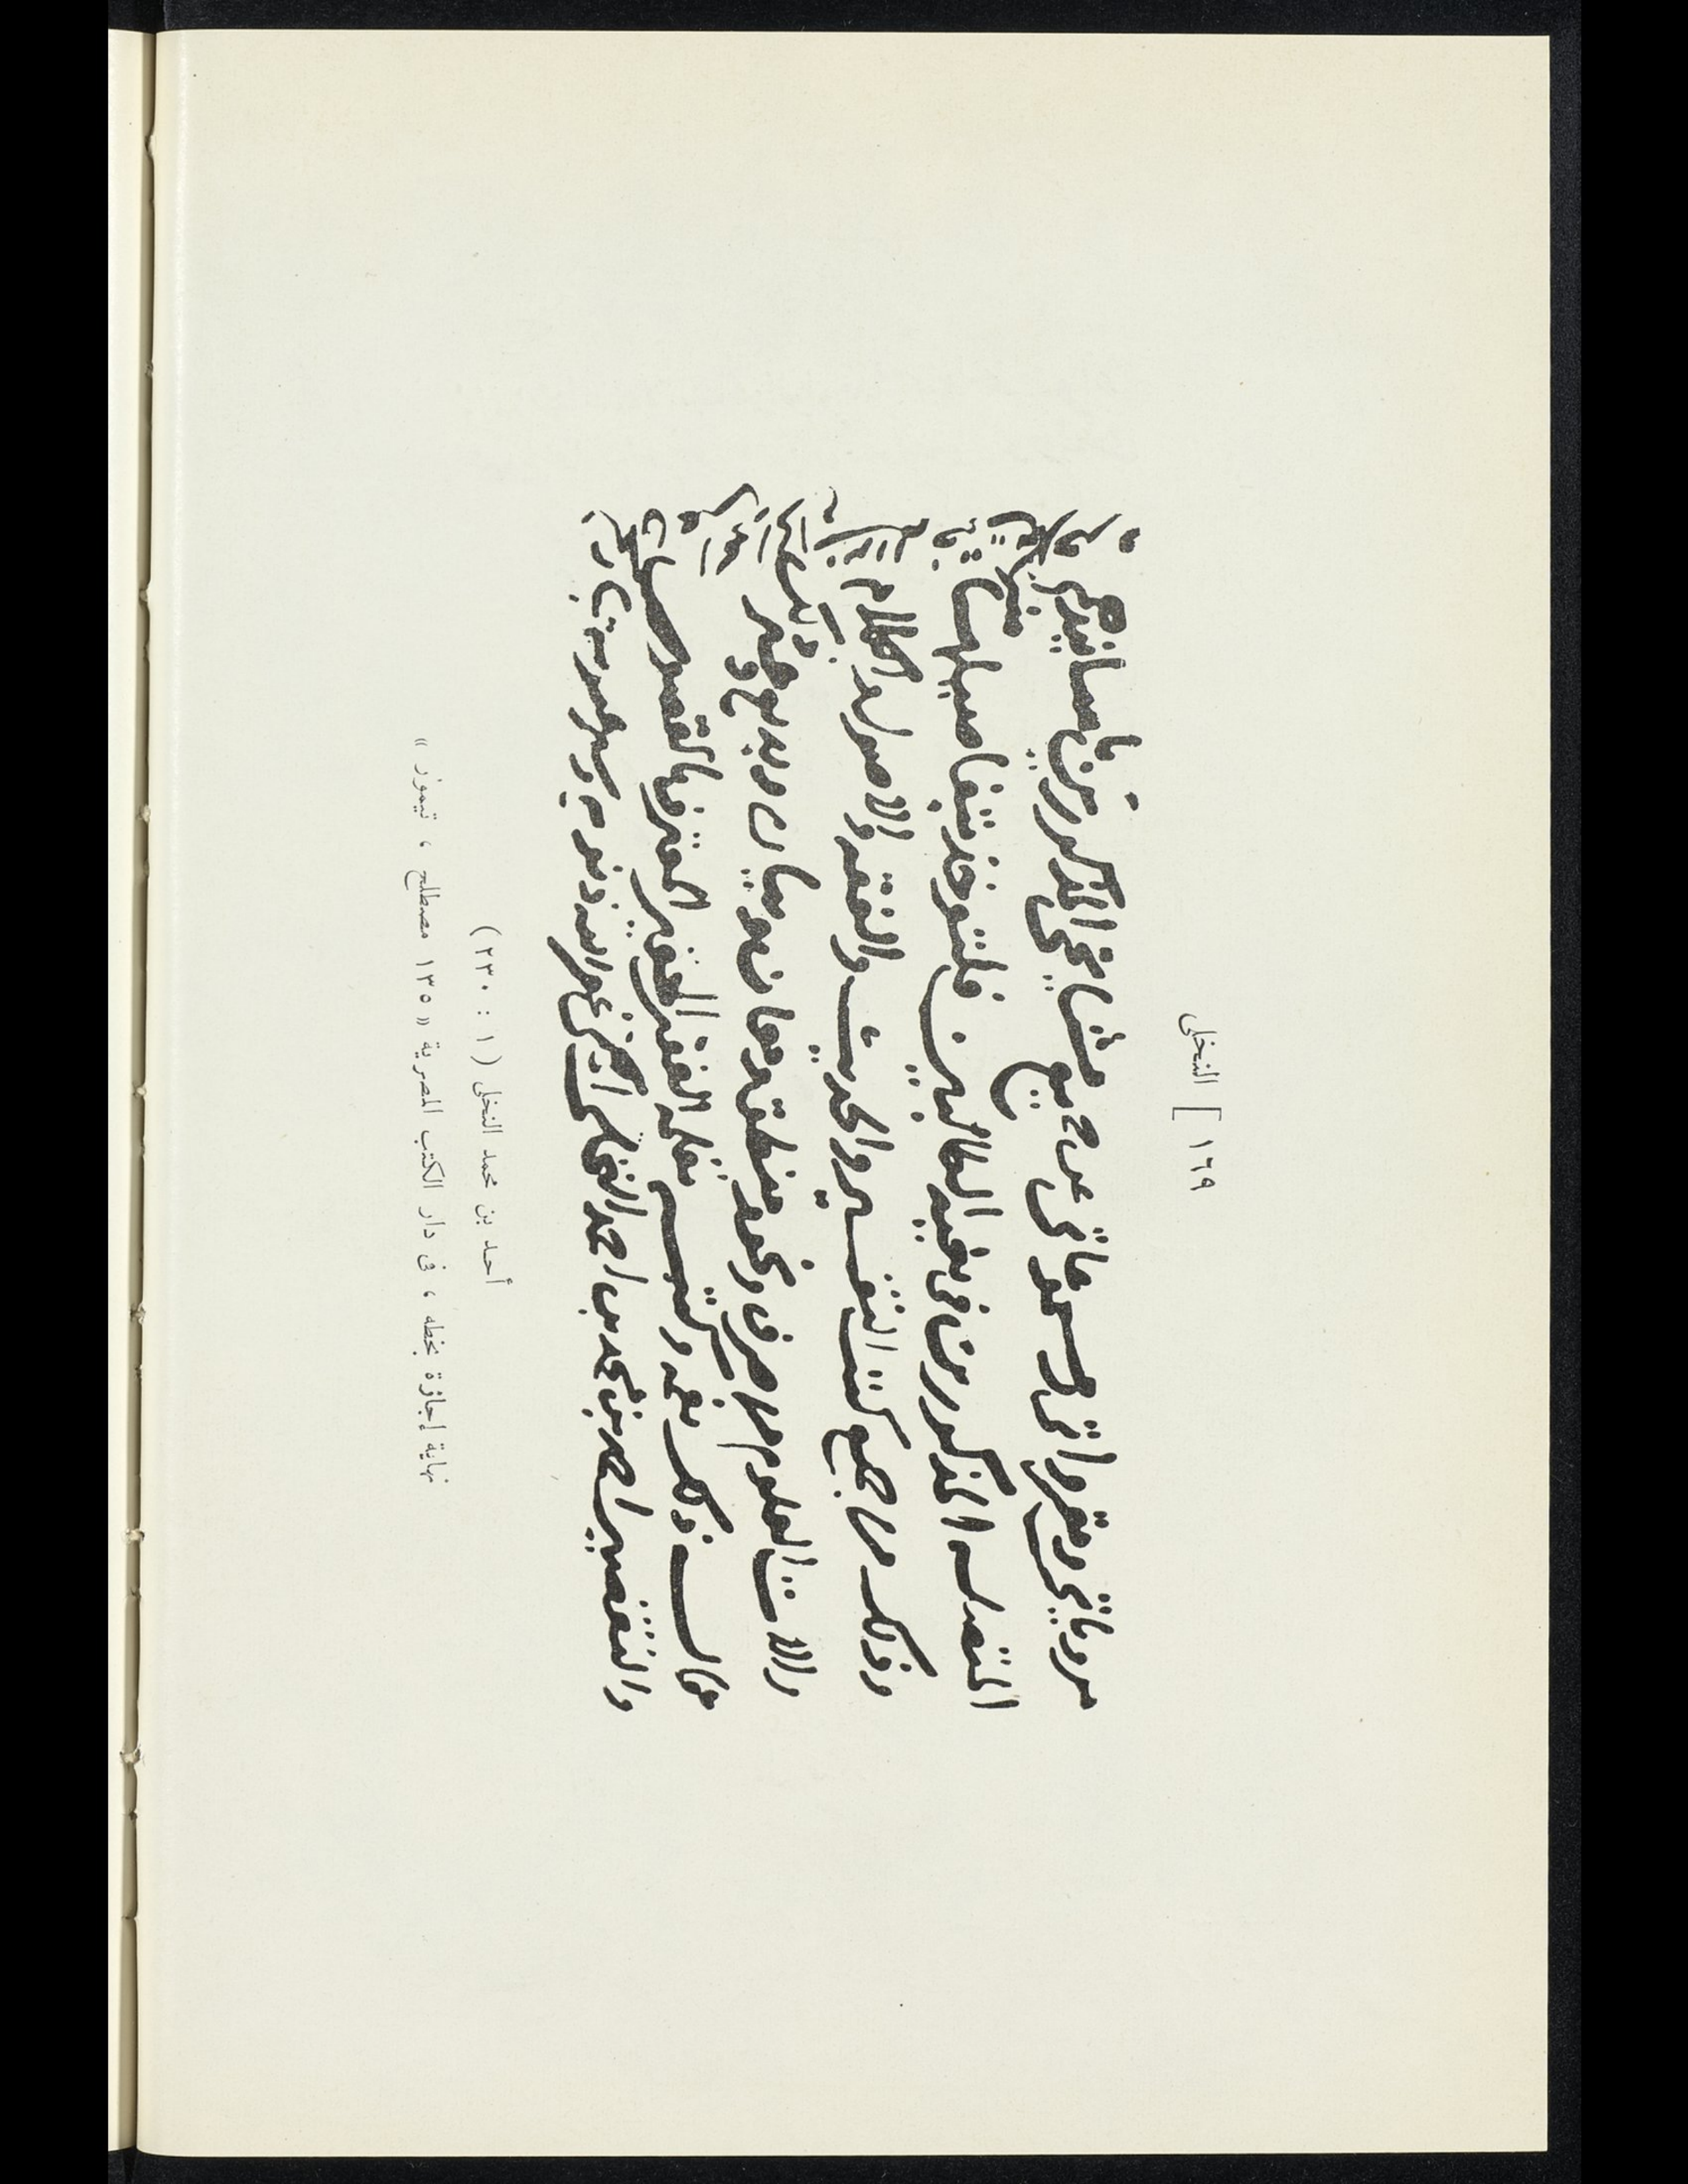 ١٦٩ ] النخلى
مروياتى ومقرواتى ومسموعاتى عن جميع مشايخى المذكورين باسانيدهم
المتصله المذكورين فى بغية الطالبين فلتؤخذ بتفاصيلها
وذلك من جميع كتب التفسير والحديث والفقه والاصول والكلام
والات العلوم من صرف ونحو ومنطق ومعان وبيان وبديع وغير
قال ذلك بفمه ورقمه بقلمه الفقير الحقير المعترف بالقصور
والتقصير احمد بن محمد بن احمد النخلى المكى غفر الله ذنوبه وستر عيوبه
أحمد بن محمد النخلى ( ١ : ٢٣٠ )
نهاية إجازة بخطه ، فى دار الكتب المصرية « ١٣٥ مصطلح ، تيمور »